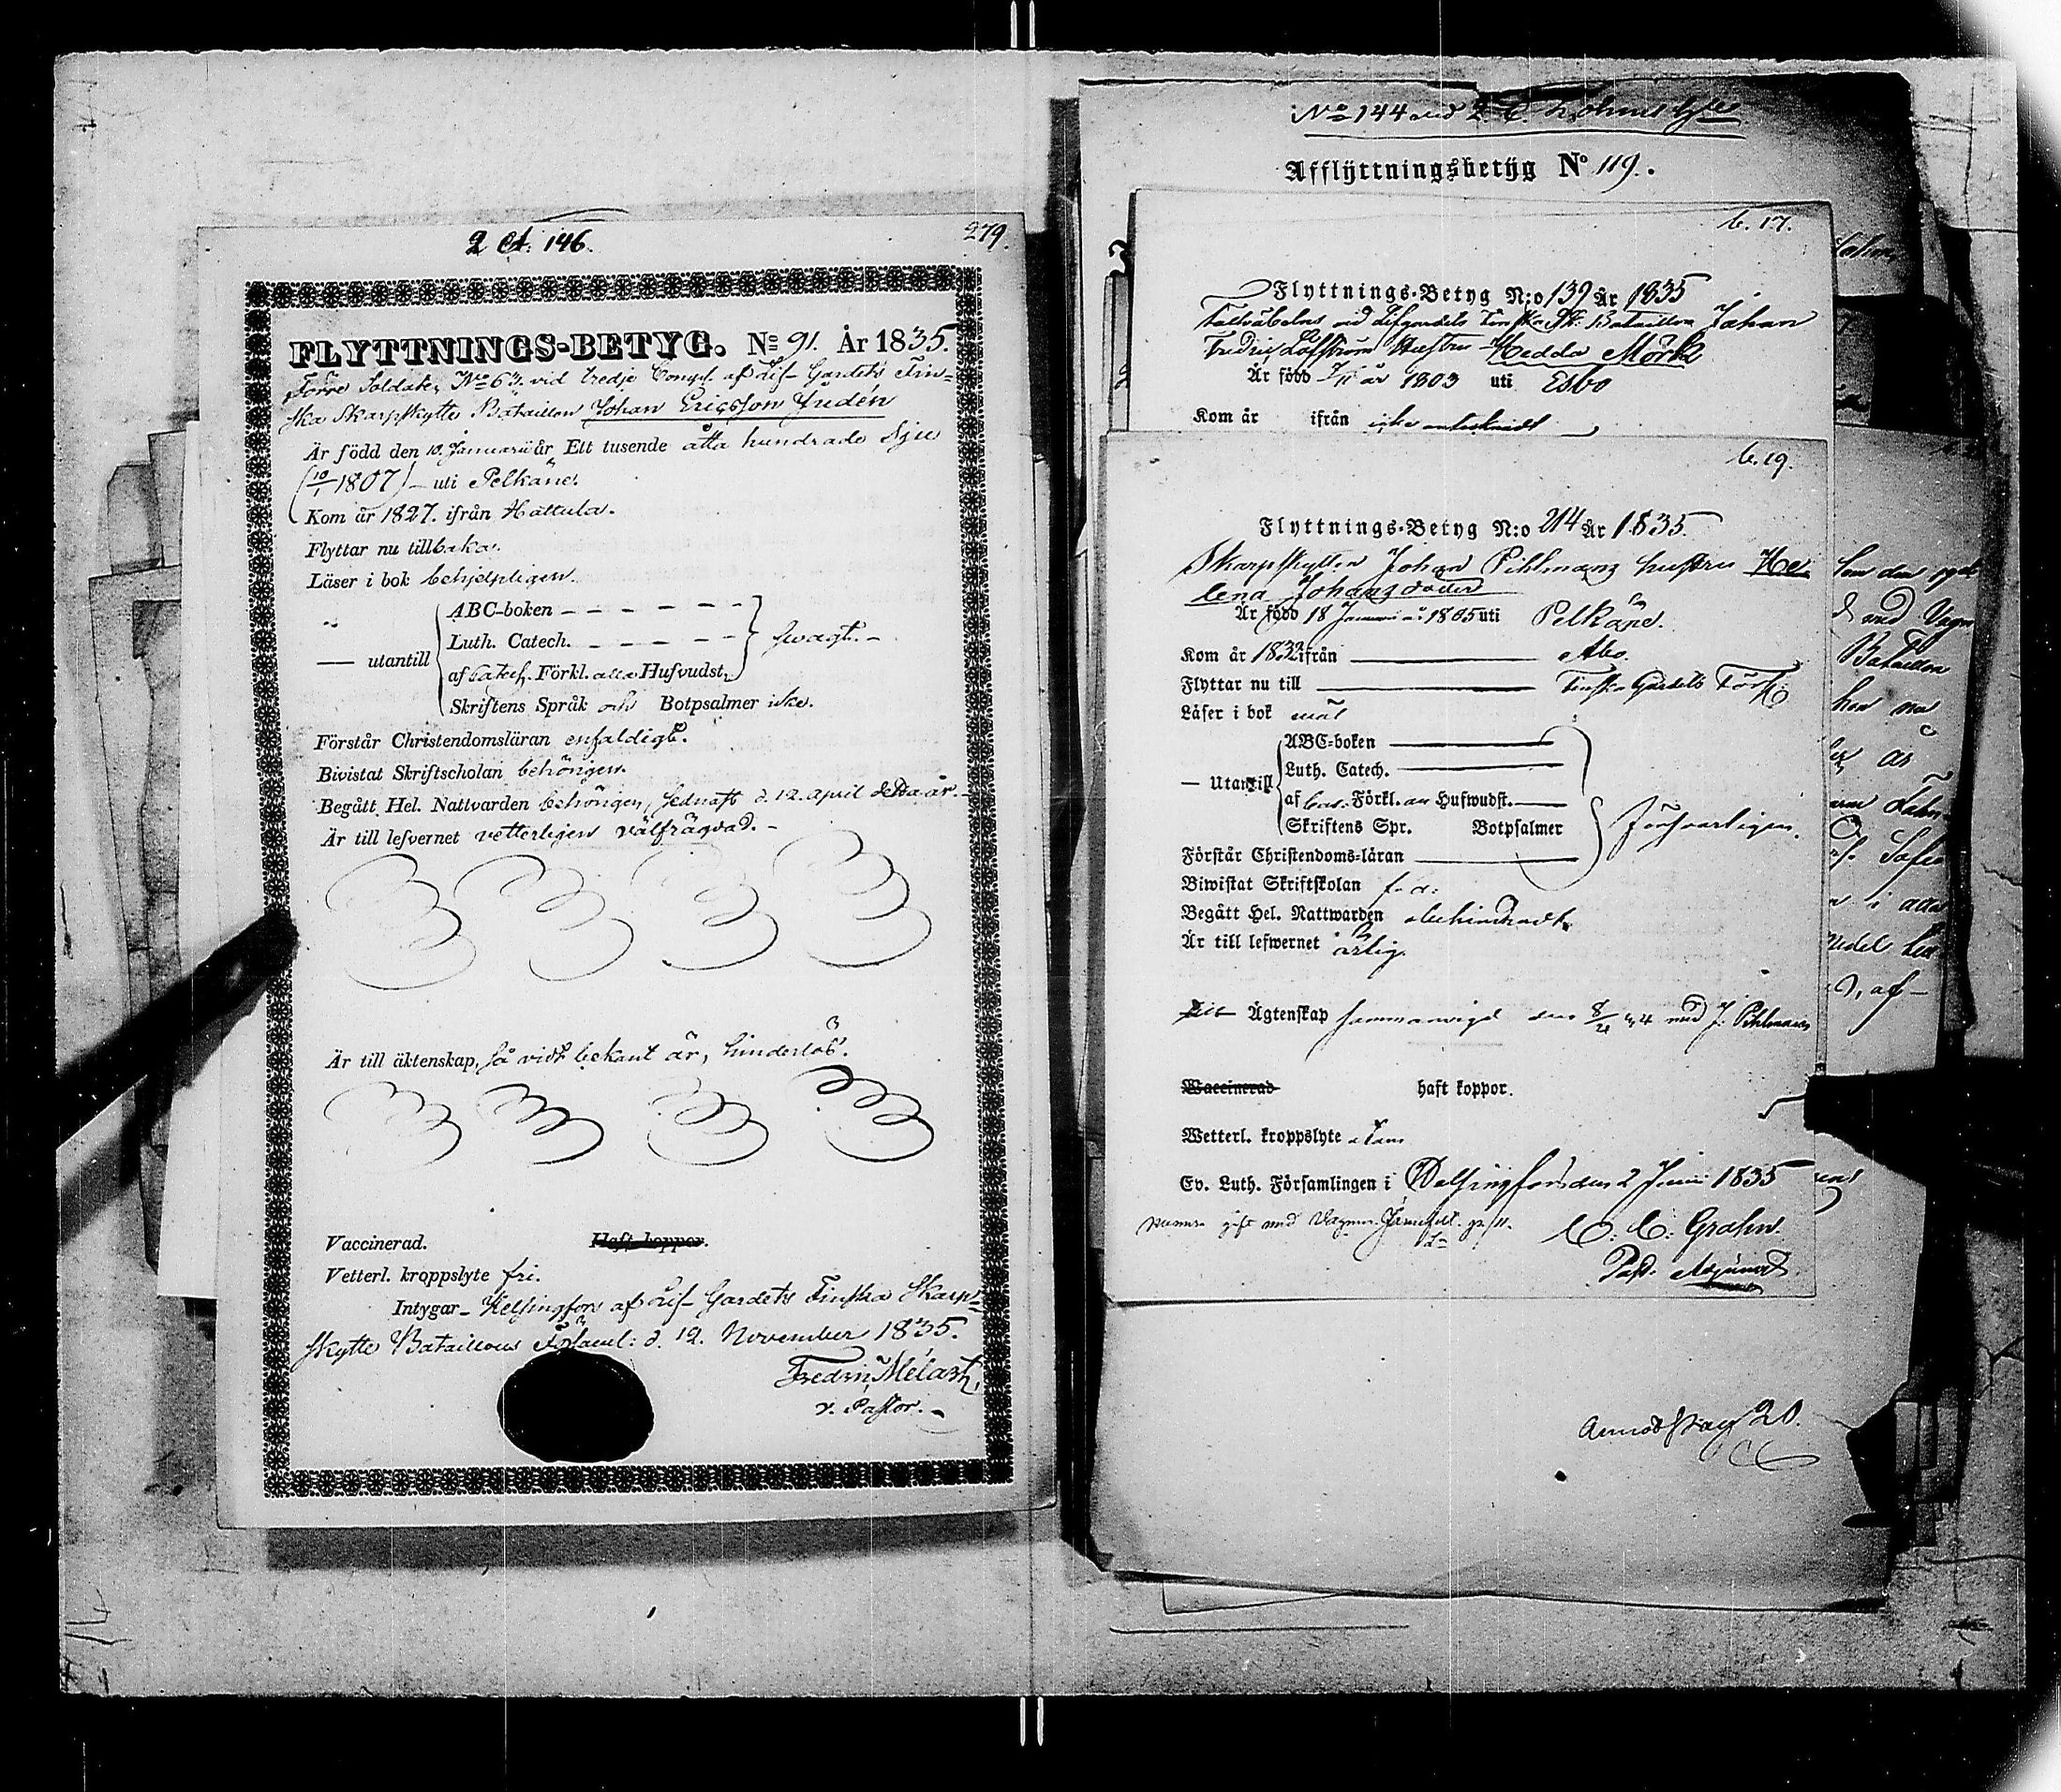 2 Ct. 146.
279.
FLYTTNINGS-BETYG. No 91. År 1835.
Förre Soldaten No 63. vid tredje Comp. af Lif-Gardets Fin-
ska Skarpskytte Bataillon Johan Ericsson Fredén
Är född den 10 Januarii år Ett tusende åtta hundrade Sju
(10/1 1807) - uti Pelkäne.
Kom år 1827. ifrån Hattula.
Flyttar nu tillbaka.
Läser i bok behjelpligen
ABC-boken
Luth. Catech.
— utantill
svagt. -
af Catech. Förkl. alla Hufvudst.
Skriftens Språk och Botpsalmer icke.
Förstår Christendomsläran enfaldigt.
Bivistat Skriftscholan behörigen.
Begått Hel. Nattvarden behörigen, sednast d. 12. April detta år.
Är till lefvernet vetterligen välfrägdad. -
Är till äktenskap, så vidt bekant är, hinderlös.
Vaccinerad. Haft koppor.
Vetterl. kroppslyte fri.
Intygar - Helsingfors af Lif-Gardets Finska Skarp-
skytte Bataillons Församl: d. 12. November 1835.
Fredric Mélart,
v. Pastor. -
No 144
Afflyttningsbetyg No 119.
b. 17.
Flyttnings-Betyg N:o 139 år 1835
Fältväbelns vid Lifgardets Finska Sk: Bataillon Johan
Fredric Löfström Hustru Hedda Mörk
Är född år 1803 uti Esbo
Kom år ifrån icke antecknadt
b. 19.
Flyttnings-Betyg N:o 214 år 1835.
Skarpskytten Johan Pihlmans hustru He
lena Johansdotter
Är född 18 Januari 1805 uti Pelkäne.
Kom år 1832 ifrån Åbo.
Flyttar nu till Finska Gardets Förs.
Läser i bok väl
ABC-boken
Luth. Catech.
— Utantill
af Cat. Förkl. Hufwudst.
Skriftens Spr. Botpsalmer
Försvarligen.
Förstår Christendoms-läran
Biwistat Skriftskolan
Begått Hel. Nattwarden obehindradt.
Är till lefwernet ärlig
Ägtenskap sammanvigd den med J. Pihlman
Waccinerad haft koppor.
Wetterl. kroppslyte utan
Ev. Luth. Församlingen i Helsingfors den 2 Juni 1835
C. C. Grahn.
Past. Adjunct.
20.